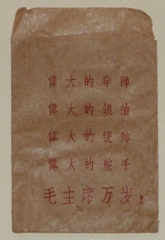 偉大的导师
偉大的領袖
偉大的统帅
偉大的舵手
毛主席万岁!